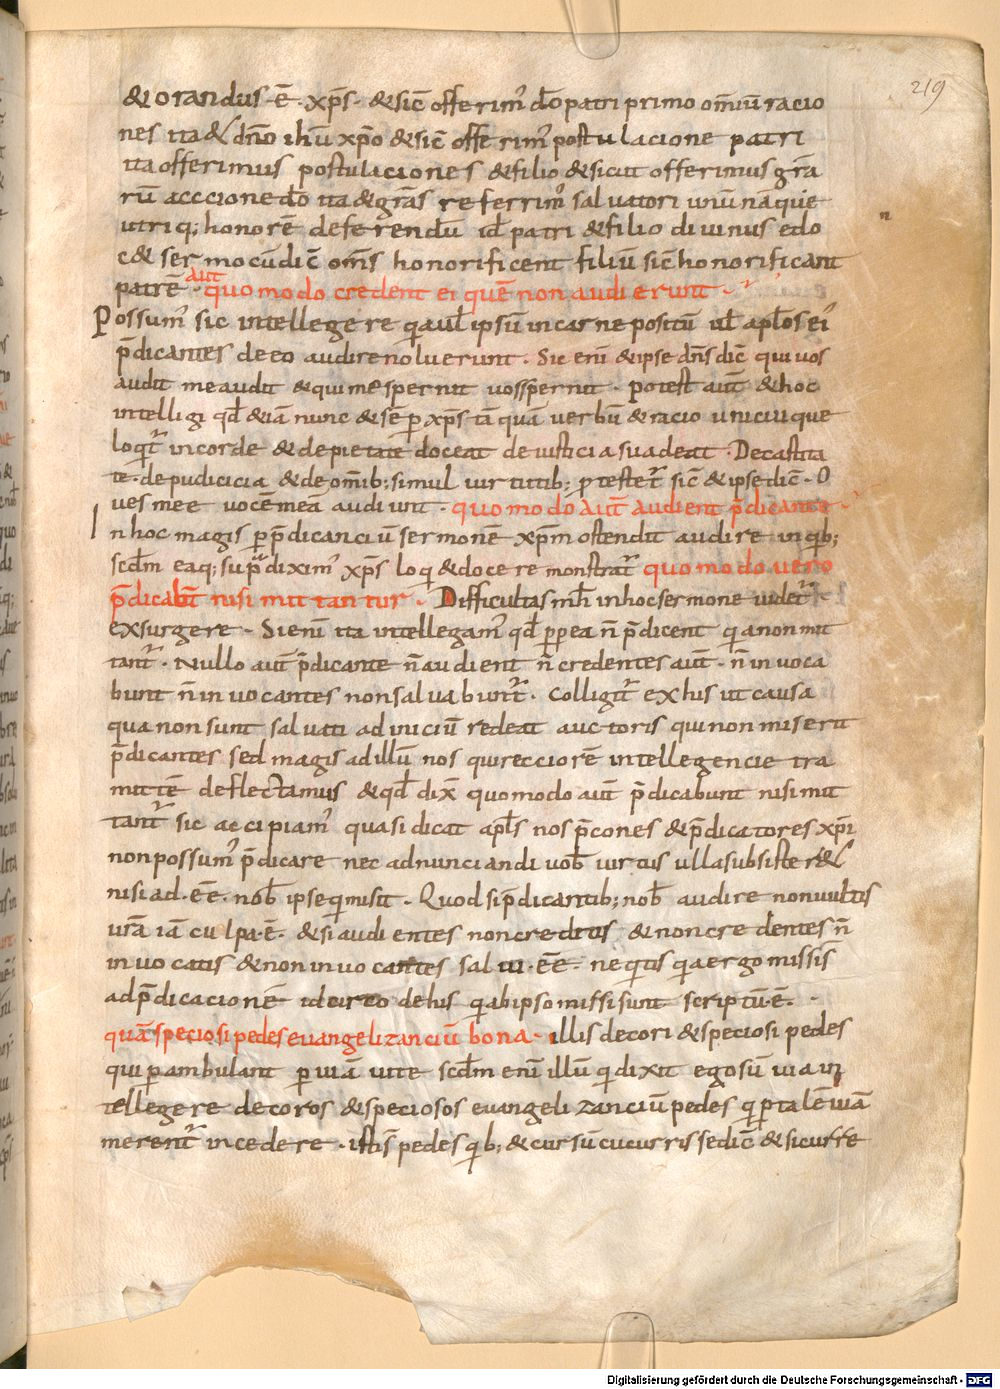 219
&orandus ē · xp̄s · &sic̄ offerim' do̅ patri primo om̄iū racio
nes ita & dn̄o ih̄u xp̄o & sic̄ offerim' postulacione patri
ita offerimus postulaciones & filio & sicut offerimus grā
rū acccione do̅ ita & grās referrim' saluatori unū nāque
utriq; honorē deferendū id̄ patri & filio diuinus edo
c& sermo cū dic̄ oms̄ honorificent filiū sic̄ honorificant
patrē · quomodo aut̄ credent ei quē non audierunt ·
Possum' sic intellegere q̄a ul̄ ipsū in carne positū ul̄ apl̄os ei'
p̄dicantes de eo audire noluerunt · Sic eni̅ & ipse dn̄s dic̄ qui uos
audit me audit & qui me spernit uos spernit · potest aut̄ & hoc
intelligi qd̄ & iā nunc & sēp xp̄s tā quā uerbū & racio unicuique
loq̄t' in corde & de pietate doceat de iusticia suadeat · De castita
te · de pudicicia & de om̄ib; simul uirtutib; p̄testet' sic̄ & ipse dic̄ · O
ues mee uocē meā audiunt · quomodo aut̄ audient p̄dicante ·
In hoc magis p̄ p̄dicanciū sermonē xp̄m ostendit audire in qb;
scd̄m eaq; sup̄dixim' xp̄s loq̄ & docere monstrat' quomodo uero
p̄dicab̄t nisi mittantur · Difficultas m̄h in hoc sermone uidet'
exsurgere · Si eni̅ ita intellegam' qd̄ p̄p̄ea n̄ p̄dicent q̄a non mit
tant' · Nullo aut̄ p̄dicante n̄ audient n̄ credentes aut̄ · n̄ inuoca
bunt n̄ inuocantes non saluabunt' · Colligit' ex his ut causa
qua non sunt saluati ad iniciū redeat auctoris qui non miserit
p̄dicantes sed magis ad illū nos qui recciorē intellegencie tra
mitē deflectamus & qd̄ dix̄ quomodo aut̄ p̄dicabunt nisi mit
tant' sic accipiam' quasi dicat apl̄s nos p̄cones & p̄dicatores xp̄i
non possum' p̄dicare nec adnunciandi uob̄ uirtus ulla subsister&
nisi ad·ēē· nob̄ ipse q̄ misit · Quod si p̄dicantib; nob̄ audire non uultis
urā iā culpa·ē· & si audientes non creditis & non credentes n̄
inuocatis & non inuocantes salui·ēē· neq̄tis q̄a ergo missis
ad p̄dicacionē idcirco de his q̄ ab ipso missi sunt scriptū·ē· ·
quā speciosi pedes euangelizanciū bona · illis decori & speciosi pedes
qui p̄ambulant p̄ uiā uite scd̄m eni̅ illū q̄ dixit ego sū uia in
tellegere decoros & speciosos euangelizanciū pedes q̄ p̄ talē uiā
merent' incedere · istis̄ pedes q̄b; & cursū cucurrisse dic̄ & sicurre
Digitalisierung gefördert durch die Deutsche Forschungsgemeinschaft - DFG